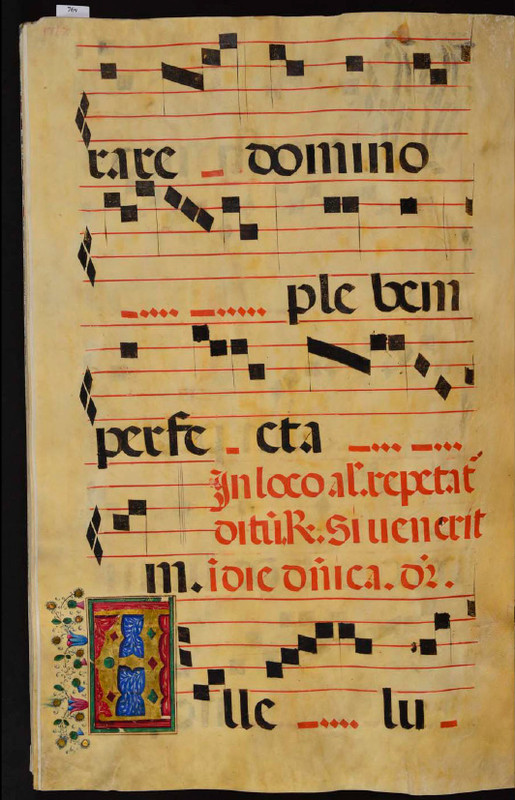 764
rare domino
ple bem
perfe cta
In loco al's. repetat͛
ditũ. ℟. Si uenerit
m. ı̃ die dñica. dr̃.
Alle lu